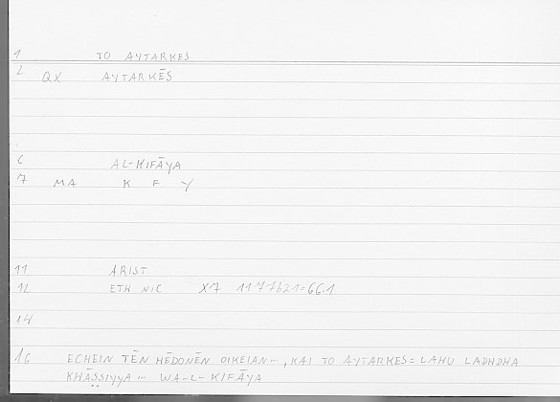 1 TO AYTARKES
2 QX AYTARKĒS
6 AL-KIFĀYA
7 MA K F Y
11 ARIST
12 ETH NIC X7 1177b21=66.1
14
16 ECHEIN TĒN HĒDONĒN OIKEIAN –, KAI TO AYTARKES = LAHU LADHDHA
KHĀṢṢIYYA – WA-L-KIFĀYA